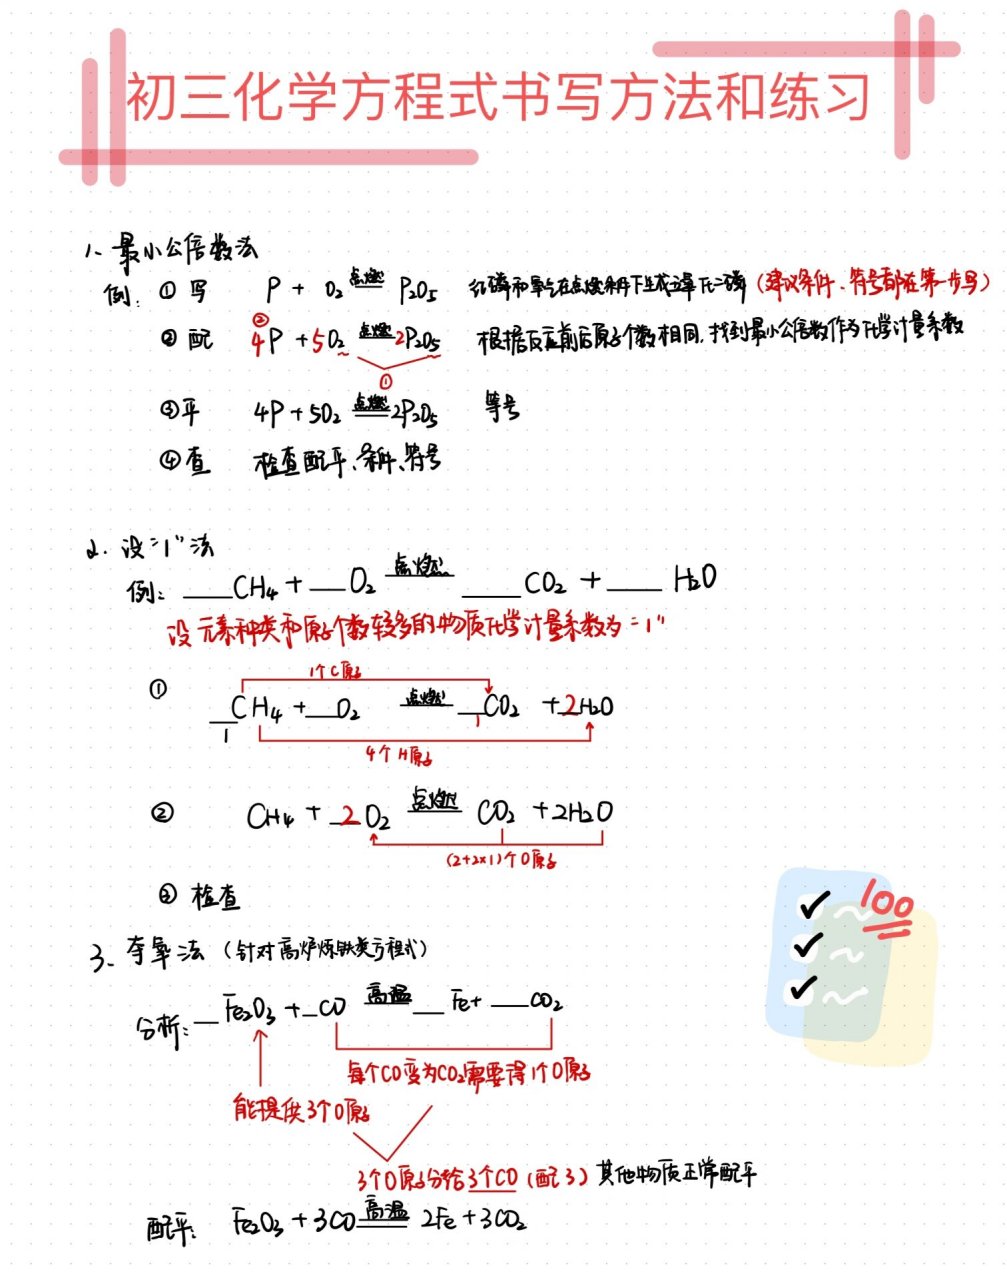 初三化学方程式书写方法和练习
1、最小公倍数法
例: ① 写 P + O₂ 点燃 P₂O₅ 红磷和氧气在点燃条件下生成五氧化二磷 (建议条件、符号都在第一步写)
② 配 ② 4P + 5O₂ 点燃 2P₂O₅ 根据反应前后原子个数相同,找到最小公倍数作为化学计量系数
①
③ 平 4P + 5O₂ 点燃 2P₂O₅ 等号
④ 查 检查配平、条件、符号
2. 设"1"法
例: ___CH₄ + ___O₂ 点燃 ___CO₂ + ___H₂O
设元素种类和原子个数较多的物质化学计量系数为"1"
1个C原子
① __CH₄ + __O₂ 点燃 __CO₂ + 2H₂O
1 1
4个H原子
② CH₄ + 2O₂ 点燃 CO₂ + 2H₂O
(2+2×1)个O原子
③ 检查
100
3、夺氧法 (针对高炉炼铁类方程式)
分析: __Fe₂O₃ + __CO 高温 __Fe + __CO₂
每个CO变为CO₂需要得1个O原子
能提供3个O原子
3个O原子分给3个CO (配3) 其他物质正常配平
配平: Fe₂O₃ + 3CO 高温 2Fe + 3CO₂